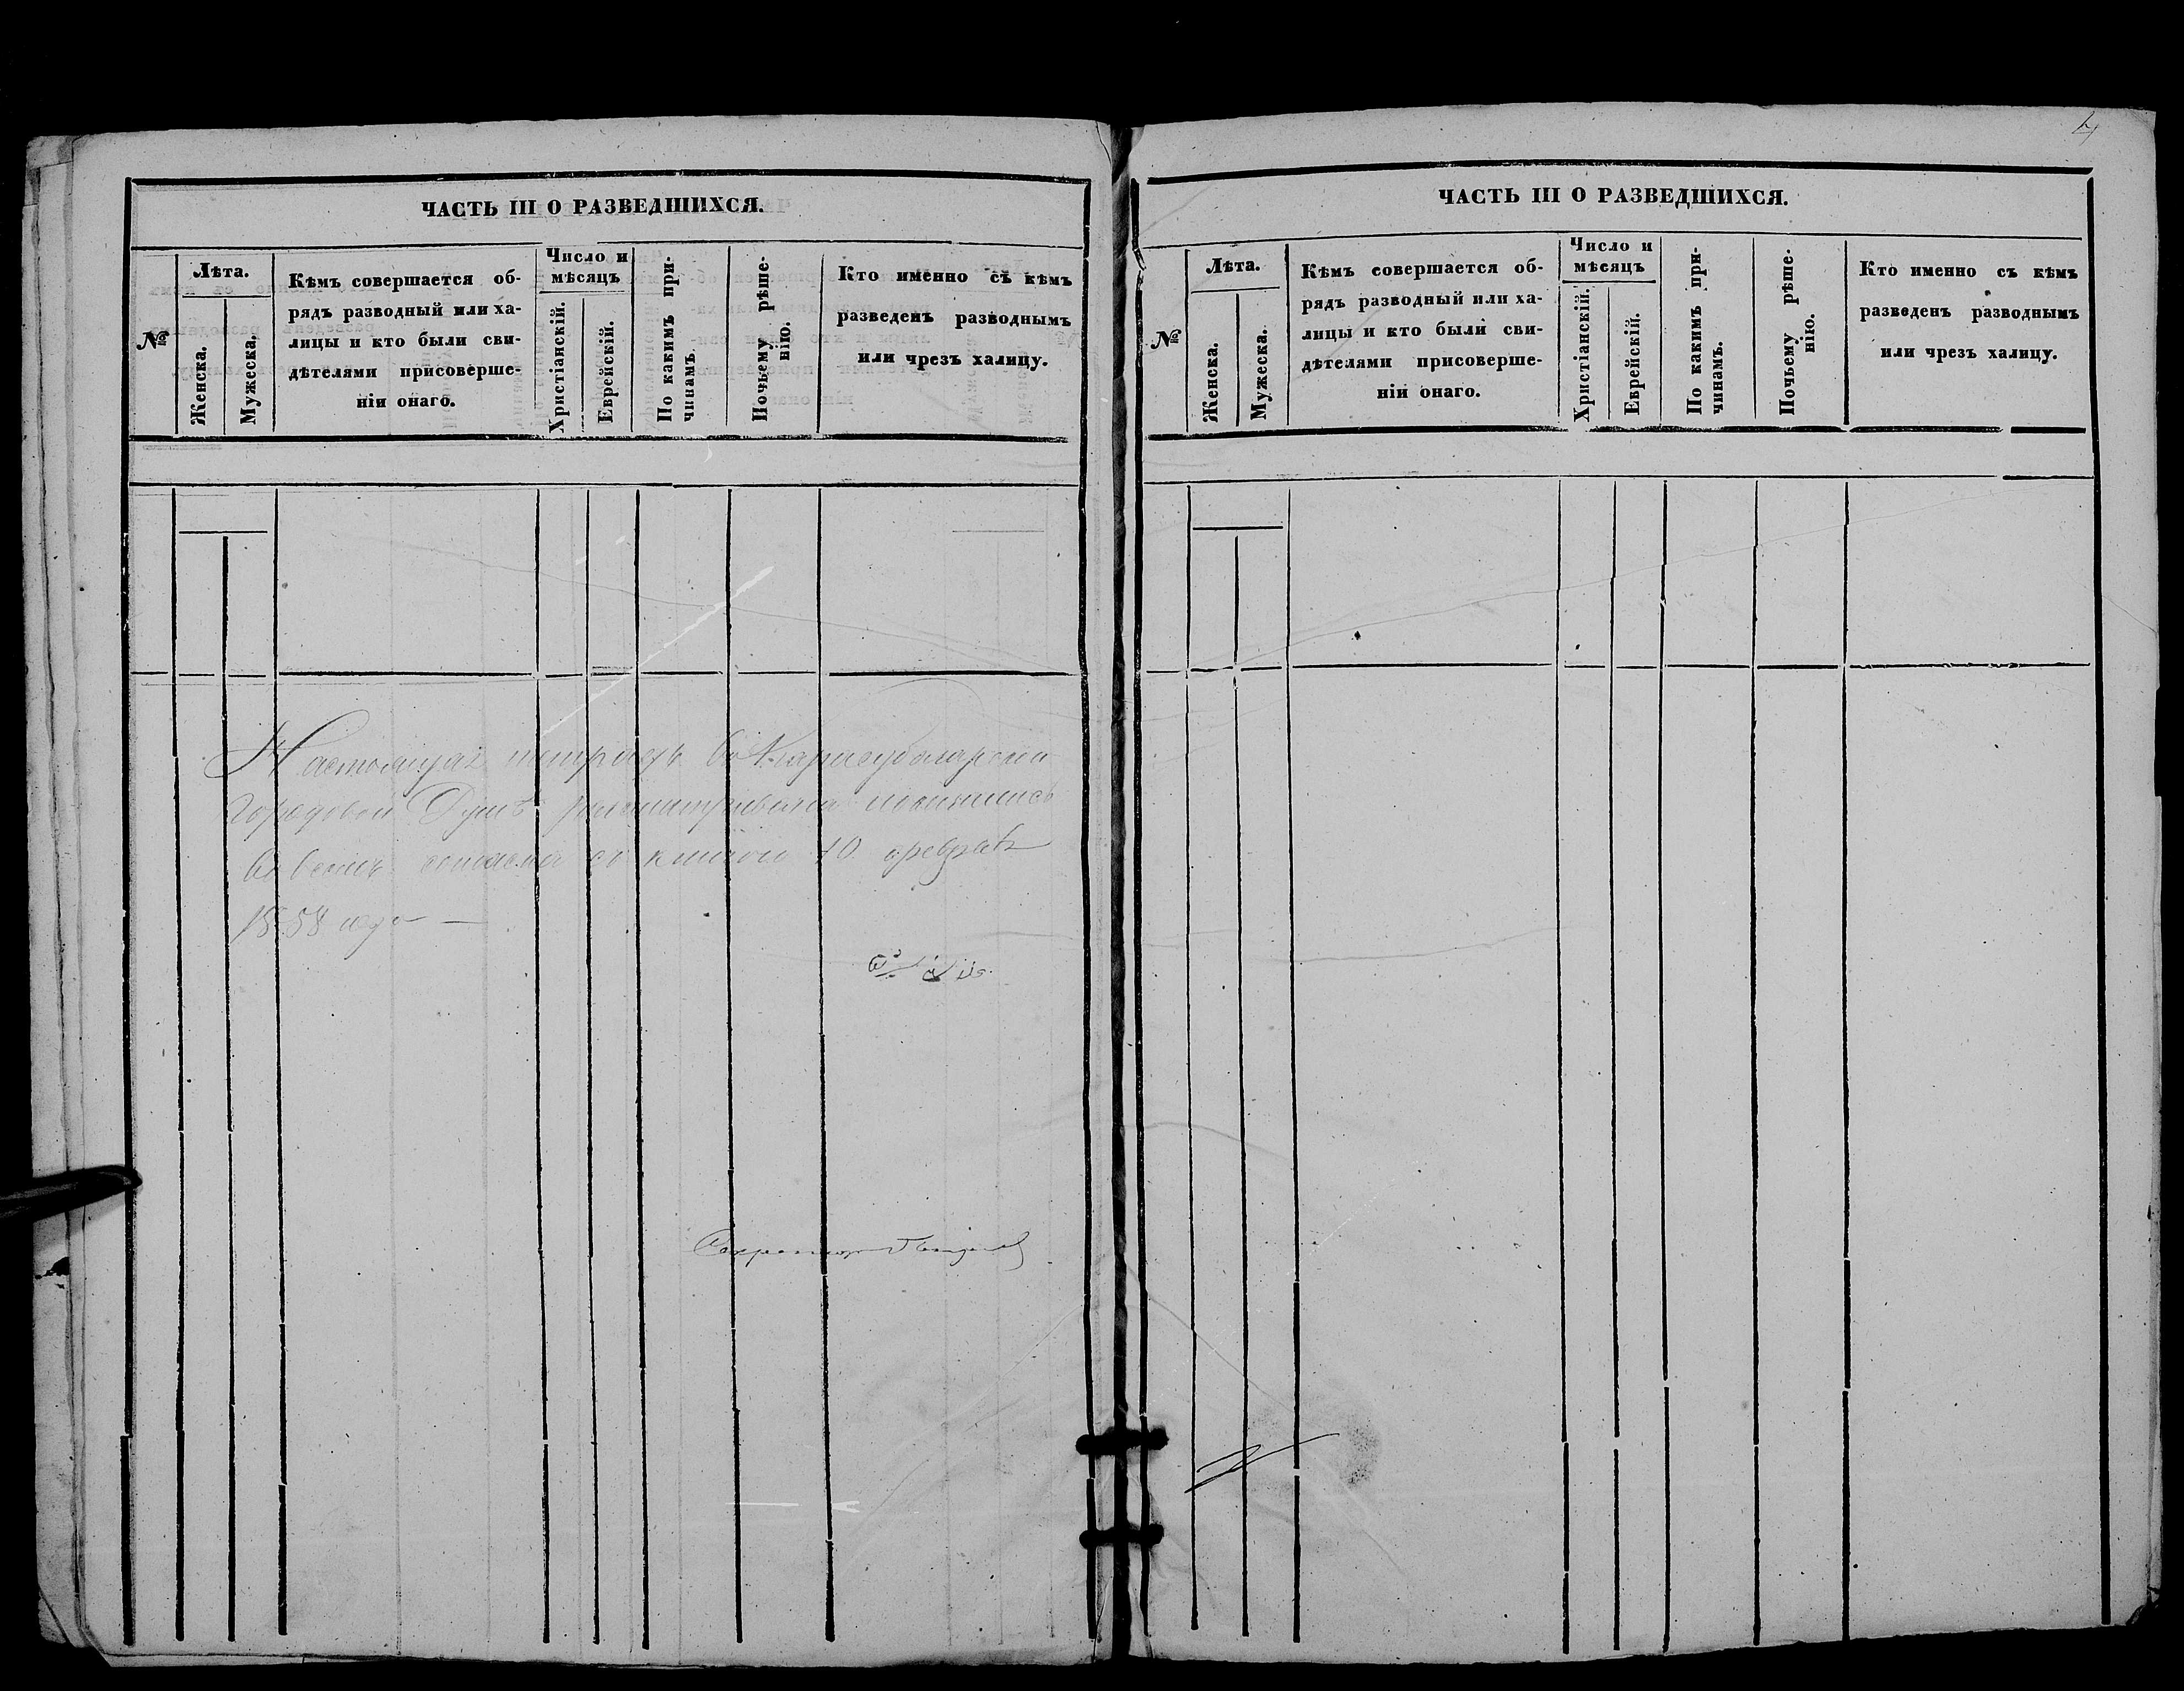 ЧАСТЬ III О РАЗВЕДШИХСЯ.
№
Лѣта.
Женска.
Мужеска.
Кѣмъ совершается об-
рядъ разводный или ха-
лицы и кто были сви-
дѣтелями присоверше-
нiи онаго.
Число и
мѣсяцъ
Христiанскiй.
Еврейскiй.
По какимъ при-
чинамъ.
Почьему рѣше-
нiю.
Кто именно съ кѣмъ
разведенъ разводнымъ
или чрезъ халицу.
Настоящая тетрадь въ Карасубазарской
Городовой Думѣ
10 февраля
1858 года
Секретарь
4
ЧАСТЬ III О РАЗВЕДШИХСЯ.
№
Лѣта.
Женска.
Мужеска.
Кѣмъ совершается об-
рядъ разводный или ха-
лицы и кто были сви-
дѣтелями присоверше-
нiи онаго.
Число и
мѣсяцъ
Христiанскiй.
Еврейскiй.
По какимъ при-
чинамъ.
Почьему рѣше-
нiю.
Кто именно съ кѣмъ
разведенъ разводнымъ
или чрезъ халицу.